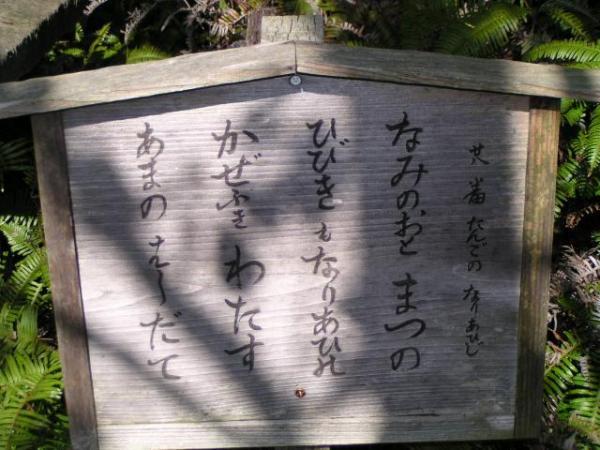 廿八番 たんごの なりあひじ
なみのおと まつの
ひびき も なりあひの
かぜふき わたす
あまの はしだて